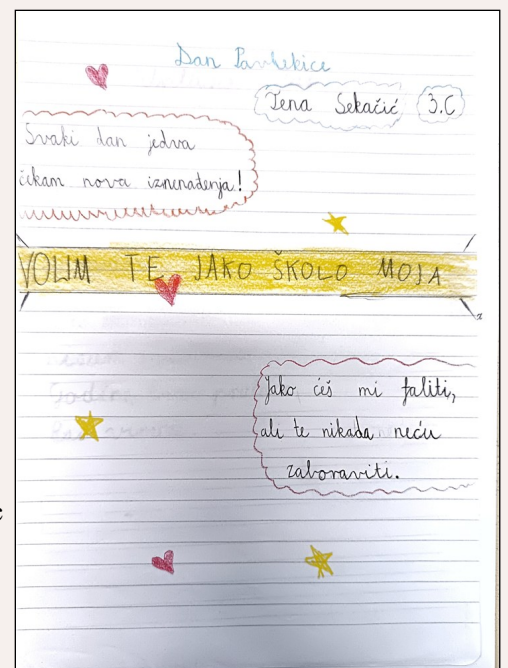 Dan Pavlekice
Tena Sekačić 3.C
Svaki dan jedva
čekam nova iznenađenja!
VOLIM TE JAKO ŠKOLO MOJA
Jako ćeš mi faliti,
ali te nikada neću
zaboraviti.